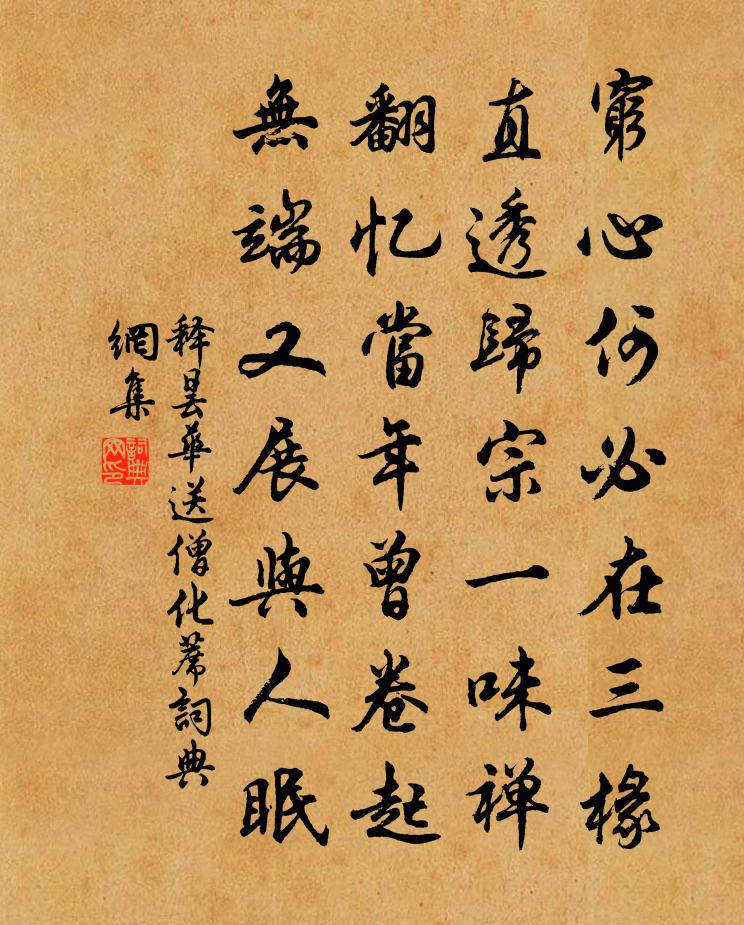 窮心何必在三椽
直透歸宗一味禅
翻忆當年曾卷起
無端又展與人眠
释曇華送僧化蓆詞典
網集
詞典
网印